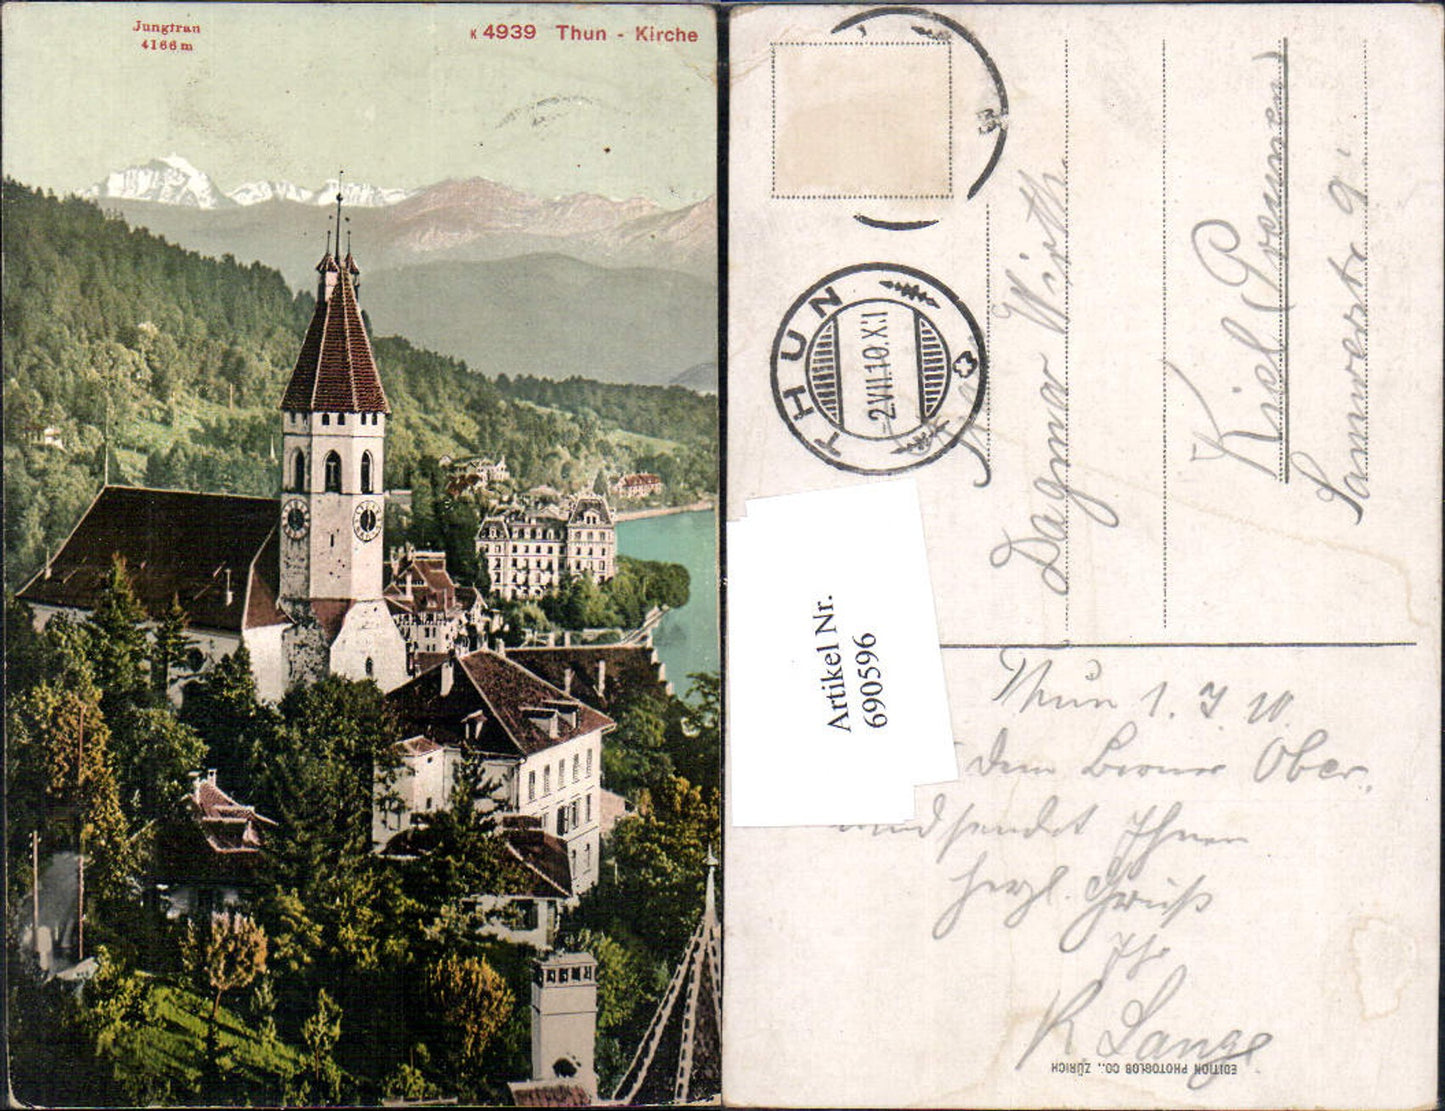 Jungfrau
4166 m
K 4939 Thun - Kirche
THUN
-2.VII.10.XI
Dagmar Wirth
Kiel (Preussen)
9.
Artikel Nr.
690596
Thun 1. 7. 10.
dem Berner Ober-
land sendet Ihnen
herzl. Grüße
Ihr
R Lange
EDITION PHOTOGLOB CO., ZÜRICH